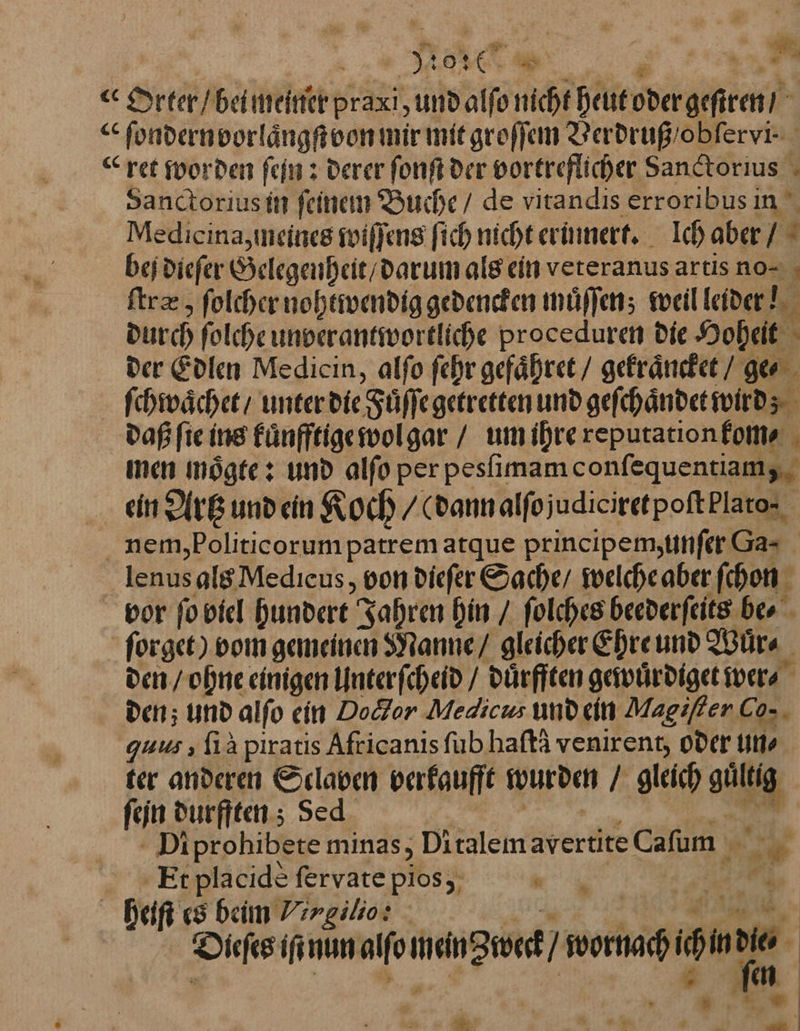 ):o:(
“ Orter / bei meiner praxi, und alſo nicht heut oder geſtren /
“ ſondern vorlaͤngſt von mir mit groſſem Verdruß / obſervi-
“ ret worden ſejn : derer ſonſt der vortreflicher Sanctorius
Sanctorius in ſeinem Buche / de vitandis erroribus in
Medicina, meines wiſſens ſich nicht erinnert. Ich aber /
bej dieſer Gelegenheit / darum als ein veteranus artis no-
ſtræ, ſolcher nohtwendig gedencken muͤſſen; weil leider!
durch ſolche unverantwortliche proceduren die Hoheit
der Edlen Medicin, alſo ſehr gefaͤhret / gekraͤncket / ge-
ſchwaͤchet / unter die Fuͤſſe getretten und geſchaͤndet wird;
daß ſie ins kuͤnfftige wol gar / um ihre reputation kom-
men moͤgte : und alſo per pesſimam conſequentiam,
ein Artz und ein Koch / (dann alſo judiciret poſt Plato-
nem, Politicorum patrem atque principem, unſer Ga-
lenus als Medicus, von dieſer Sache / welche aber ſchon
vor ſo viel hundert Jahren hin / ſolches beederſeits be-
ſorget) vom gemeinen Manne / gleicher Ehre und Wuͤr-
den / ohne einigen Unterſcheid / duͤrfften gewuͤrdiget wer-
den; und alſo ein Doctor Medicus und ein Magiſter Co-
quus, ſi à piratis Africanis ſub haſtâ venirent, oder un-
ter anderen Sclaven verkaufft wurden / gleich guͤltig
ſejn durfften; Sed
Dî prohibete minas, Dî talem avertite Caſum
Et placidè ſervate pios,
heiſt es beim Virgilio:
Dieſes iſt nun alſo mein Zweck / wornach ich in die-
ſen